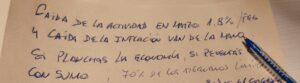 CAIDA DE LA ACTIVIDAD EN MARZO 1.8% /FEB
Y CAIDA DE LA INFLACIÓN VAN DE LA MANO
SI PLANCHAS LA ECONOMÍA, SI REVIENTAS
CONSUMO, 70% DE LOS